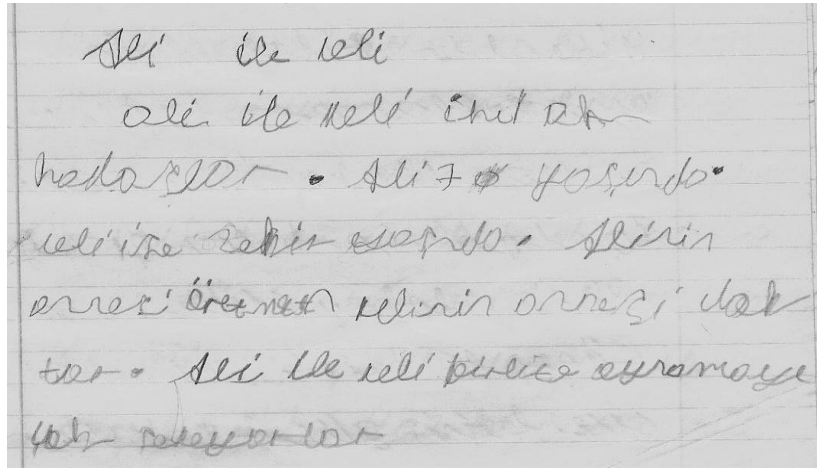 Ali ile veli
Ali ile veli ihil Ar
kadaşlar. Ali 7 yaşında.
veli ise sekiz yaşında. Alinin
annesi öretmen velinin annesi dok
tor. Ali ile veli birlite oynamayı
çok seveyorlar